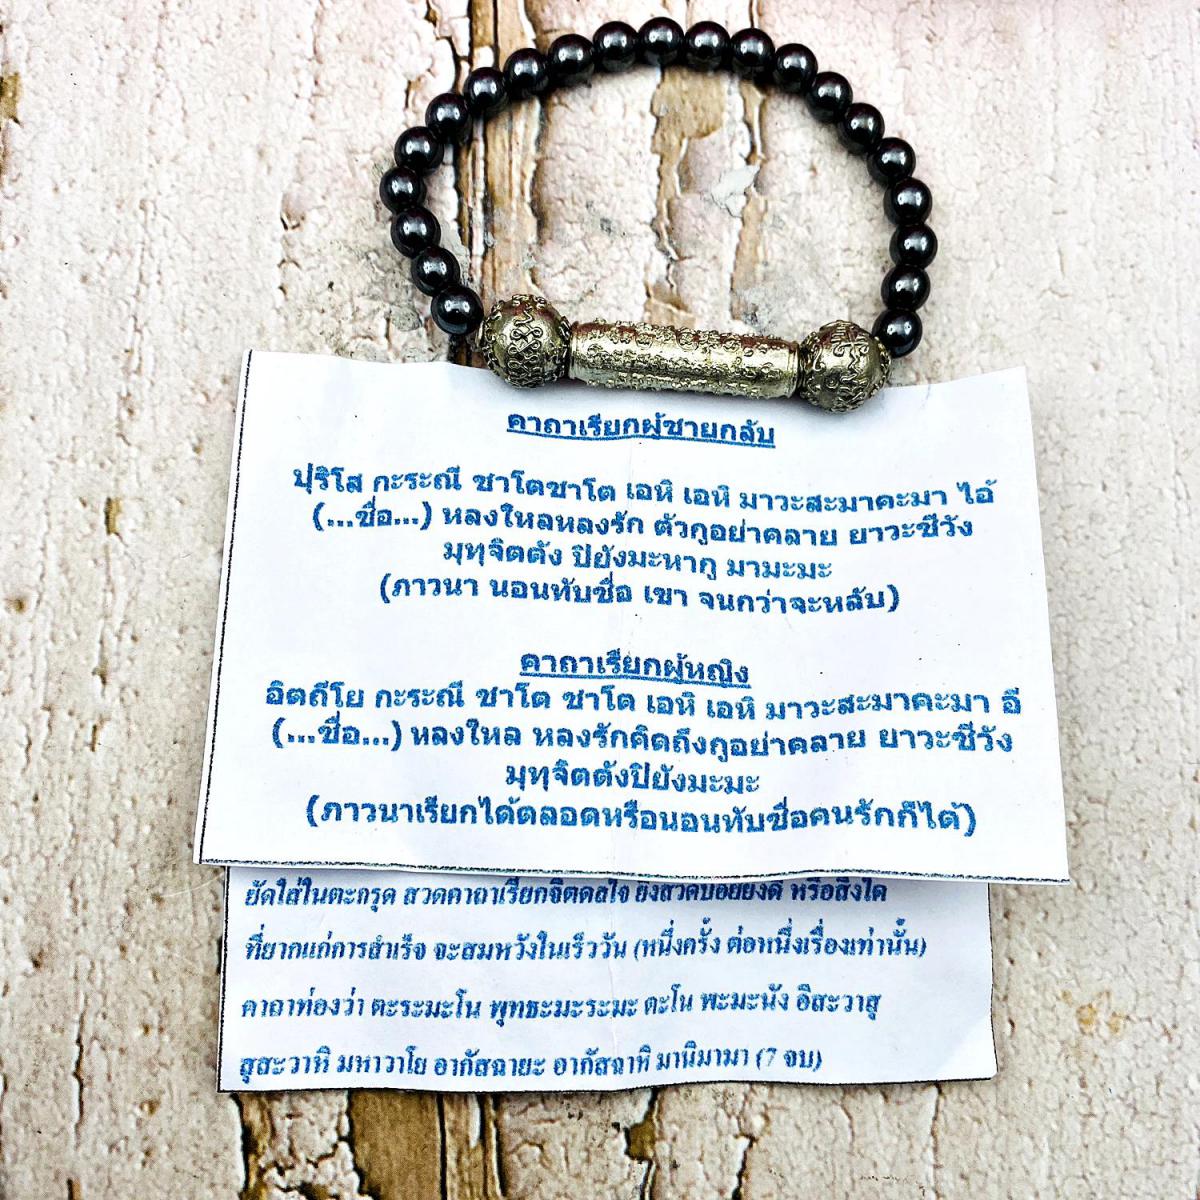 คาถาเรียกผู้ชายกลับ
ปุริโส กะระณี ชาโตชาโต เอหิ เอหิ มาวะสะมาคะมา ไอ้
(...ชื่อ...) หลงใหลหลงรัก ตัวกูอย่าคลาย ยาวะชีวัง
มุทุจิตตัง ปิยังมะหากู มามะมะ
(ภาวนา นอนทับชื่อ เขา จนกว่าจะหลับ)
คาถาเรียกผู้หญิง
อิตถีโย กะระณี ชาโต ชาโต เอหิ เอหิ มาวะสะมาคะมา อี
(...ชื่อ...) หลงใหล หลงรักคิดถึงกูอย่าคลาย ยาวะชีวัง
มุทุจิตตังปิยังมะมะ
(ภาวนาเรียกได้ตลอดหรือนอนทับชื่อคนรักก็ได้)
ยัดใส่ในตะกรุด สวดคาถาเรียกจิตดลใจ ยิ่งสวดบ่อยยิ่งดี หรือสิ่งใด
ที่ยากแก่การสำเร็จ จะสมหวังในเร็ววัน (หนึ่งครั้ง ต่อหนึ่งเรื่องเท่านั้น)
คาถาท่องว่า ตะระมะโน พุทธะมะระมะ ตะโน พะมะนัง อิสะวาสุ
สุสะวาหิ มหาวาโย อากัสฉายะ อากัสฉาหิ มานิมามา (7 จบ)